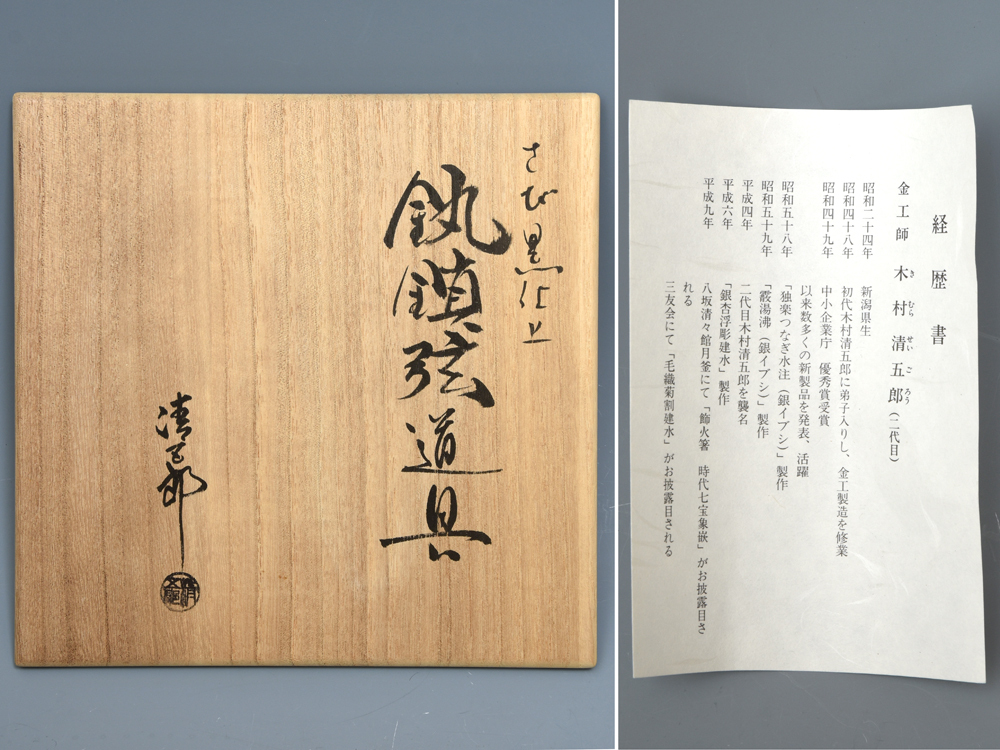 さび黒仕上
釻鎖弦道具
清五郎
経歴書
金工師 木村清五郎(二代目)
き むら せい ご ろう
昭和二十四年 新潟県生
昭和四十八年 初代木村清五郎に弟子入りし、金工製造を修業
昭和四十九年 中小企業庁 優秀賞受賞
以来数多くの新製品を発表、活躍
昭和五十八年 「独楽つなぎ水注(銀イブシ)」製作
昭和五十九年 「霰湯沸(銀イブシ)」製作
平成四年 二代目木村清五郎を襲名
平成六年 「銀杏浮彫建水」製作
平成九年 八坂清々館月釜にて「飾火箸 時代七宝象嵌」がお披露目さ
れる
三友会にて「毛織菊割建水」がお披露目される